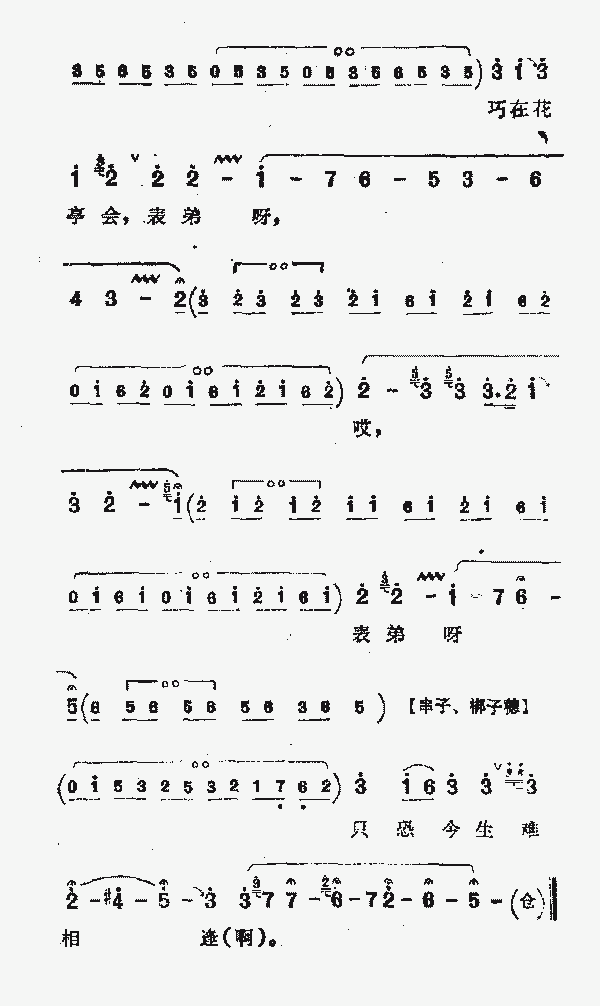 3 5 6 5 3 5 0 5 3 5 0 5 3 5 6 5 3 5) 3 1 3
巧在花
1 2 2 2 - 1 - 7 6 - 5 3 - 6
亭会，表弟 呀，
4 3 - 2(3 2 3 2 3 2 1 6 1 2 1 6 2
0 1 6 2 0 1 6 1 2 1 6 2) 2 - 3 3 3.2 1
哎，
3 2 - 1(2 1 2 1 2 1 1 6 1 2 1 6 1
0 1 6 1 0 1 6 1 2 1 6 1) 2 2 - 1 - 7 6 -
表弟 呀
5(6 5 6 5 6 5 6 3 6 5) 【串子、梆子穗】
(0 1 5 3 2 5 3 2 1 7 6 2) 3 1 6 3 3 3
只恐今生难
2 - #4 - 5 - 3 3 7 7 - 6 - 7 2 - 6 - 5 - (仓)
相 逢(啊)。